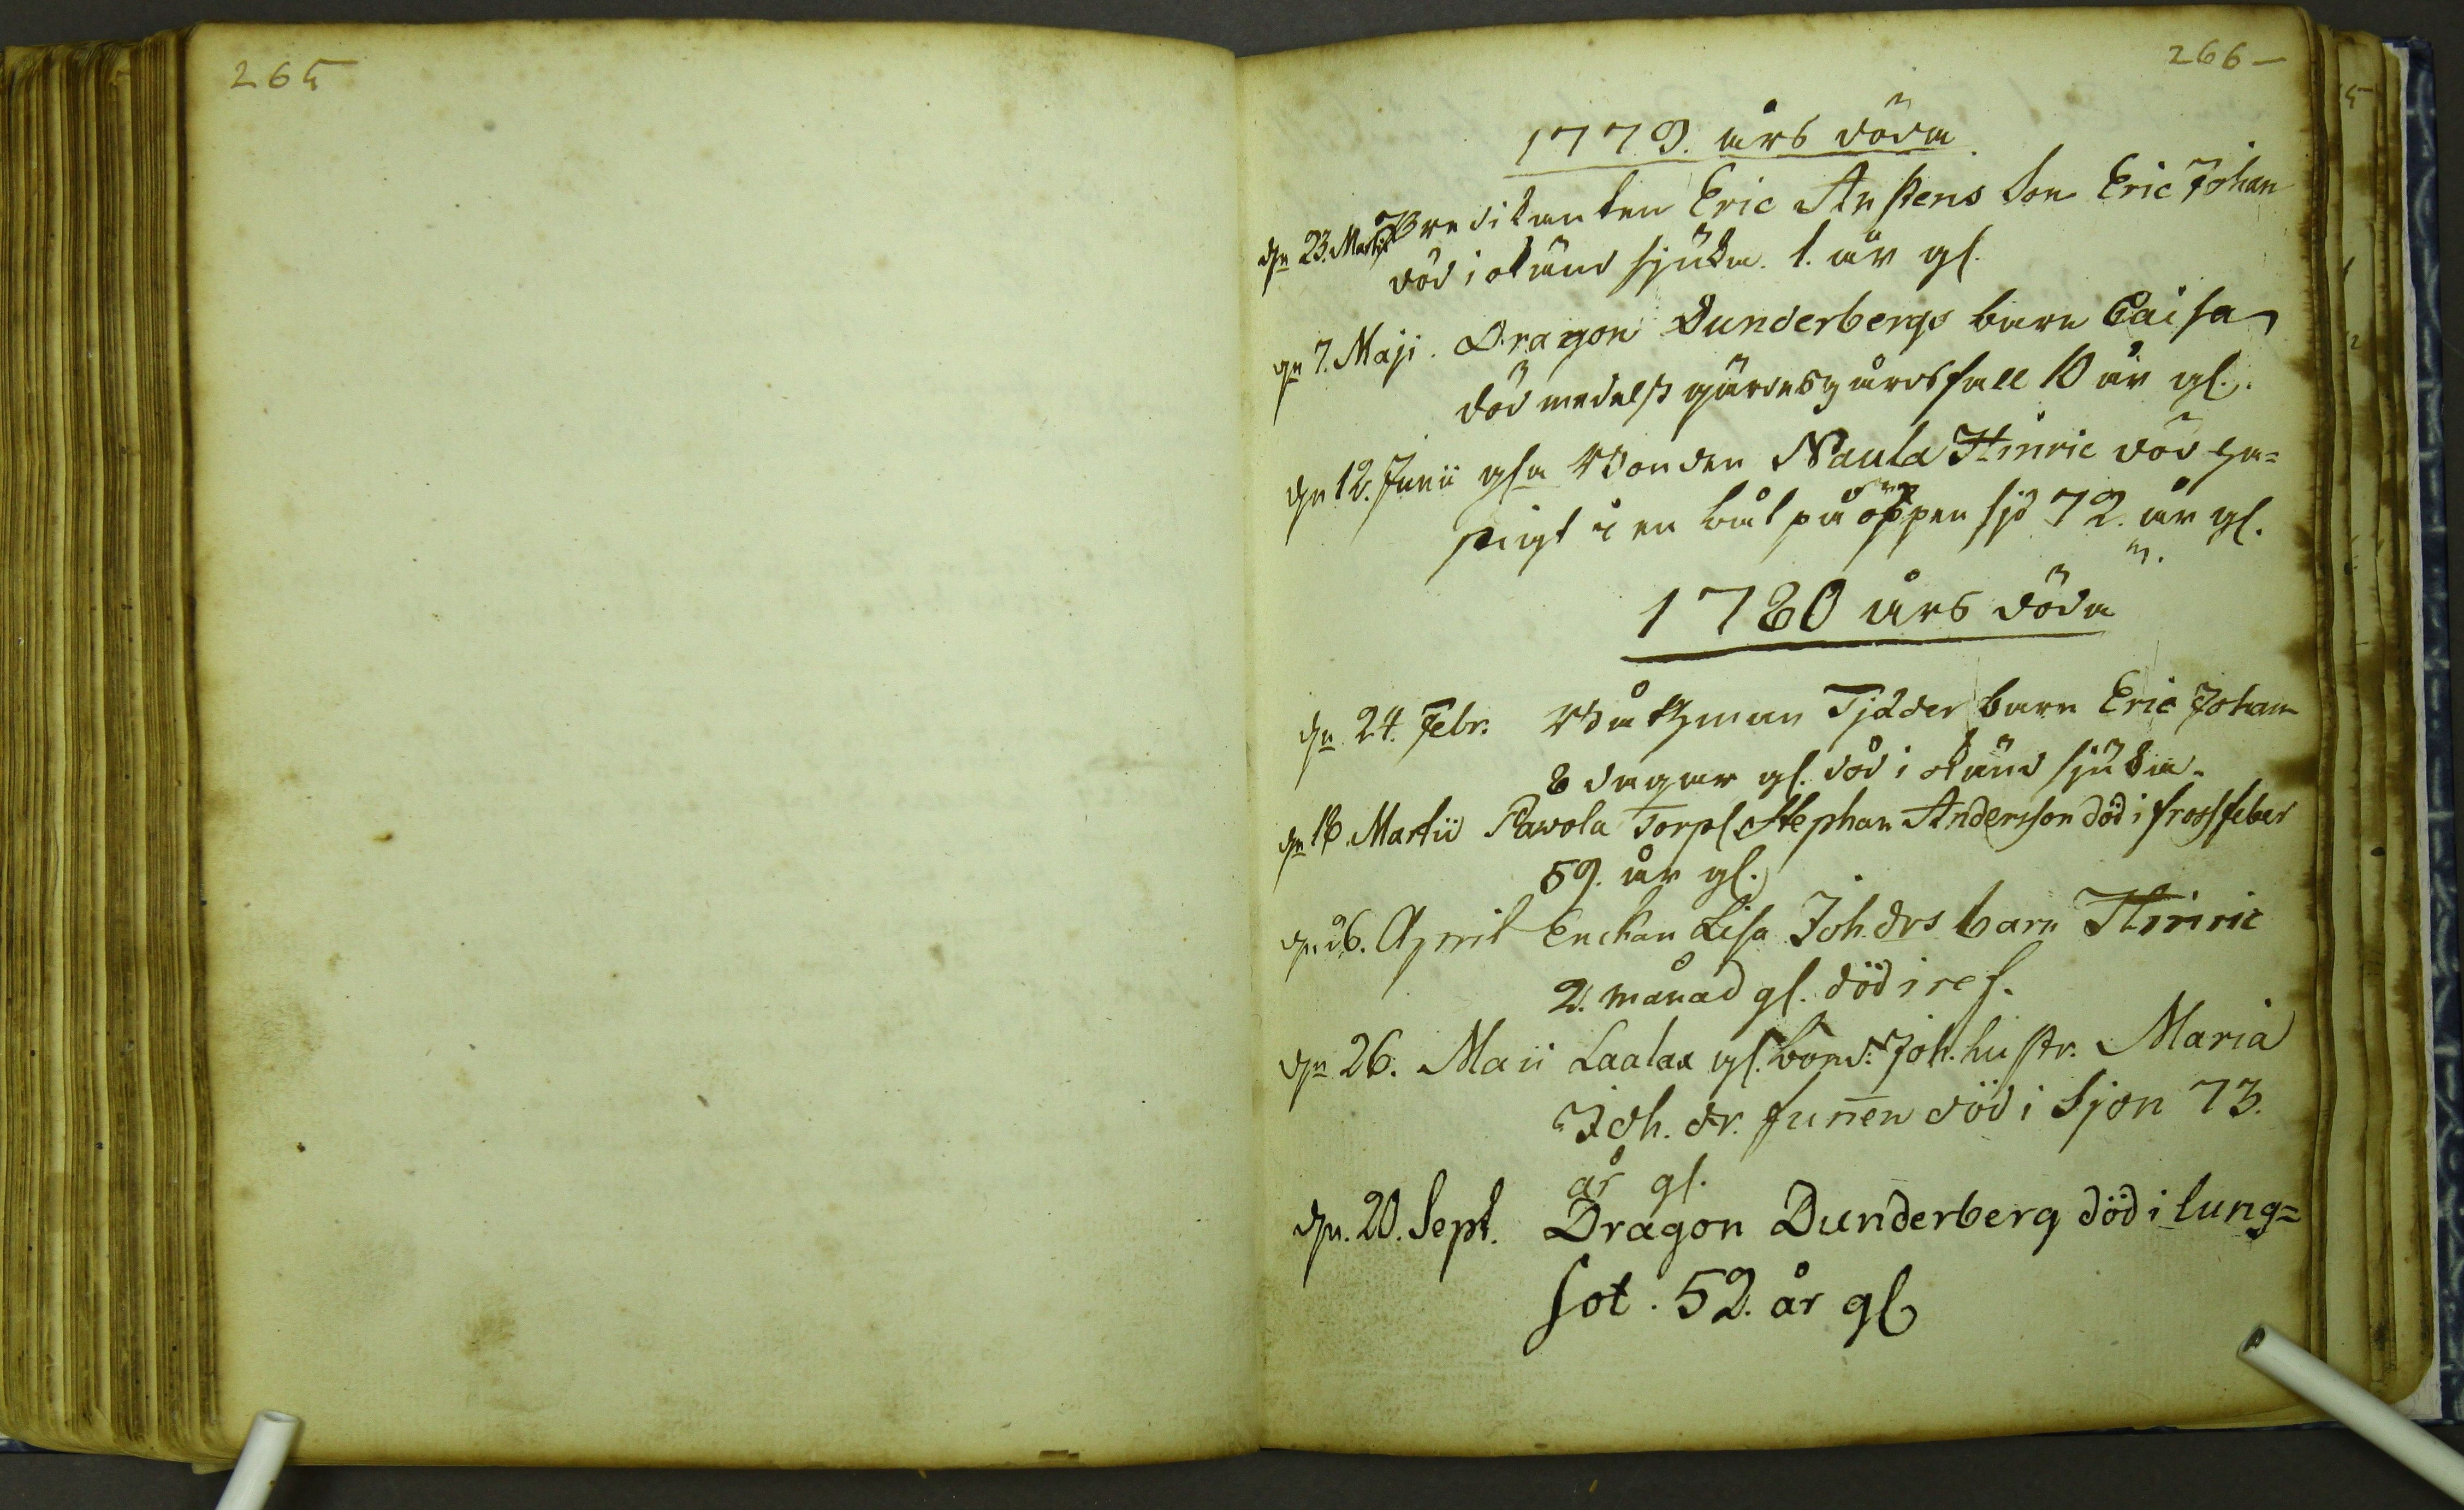 265
266
1779. års döda
dn 23. Martii Predikanten Eric Anstens Son Eric Johan
död i okänd sjukd. 1. år gl.
dn 7. Maji. Dragon Dunderbergs barn Caisa
död medelst gärdesgårdsfall 10 år gl.
dn 12. Junii gla Bonden Naula Hinric död ha=
stigt i en båt på öppen sjö 72. år gl.
1780 års döda
dn 24. Febr. Båtzman Tjäder barn Eric Johan
8 dagar gl. död i okänd sjukd.
dn 18. Martii Pavola Torp. Stephan Andersson död i frossfeber
59. år gl.
dn 26. April Enckan Lisa Joh. drs barn Hinric
2. månad gl. död i ref.
dn 26. Maii Laalax gl. bond. Joh. hustr. Maria
Joh. dr. funnen död i Sjön 73.
år gl.
dn. 20. Sept. Dragon Dunderberg död i lung=
sot. 52. år gl